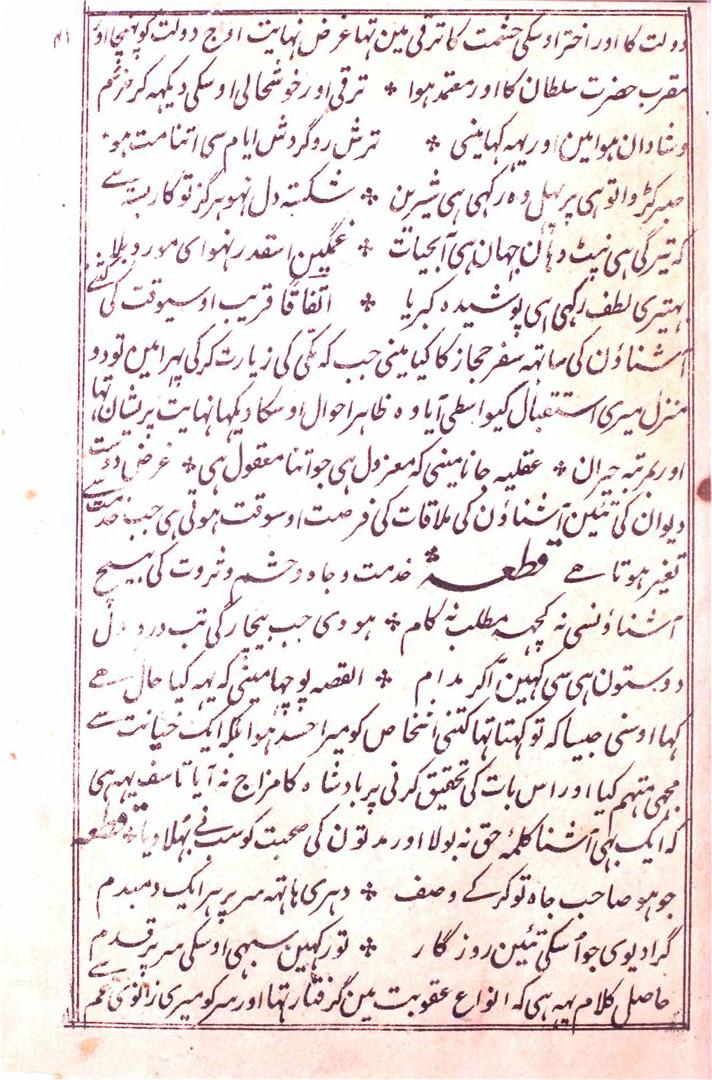 ۴۱
دولت کا اور اختر اوسکی حشمت کا ترقی مین تھا غرض نہایت اوج دولت کو پہنچا اور
مقرب حضرت سلطان کا اور معتمد ہوا ٭ ترقی اور خوشحالی اوسکی دیکہہ کر خرم
و شادان ہوا مین اور یہہ کہا مینی ٭ ترش رو گردش ایام سی اتنا مت ہو
صبر کڑوا تو ہی پر پہل وہ رکہی ہی شیرین ٭ شکستہ دل نہو ہرگز تو کار بستہ سے
کہ تیرگی ہی نپٹ دہان جہان ہی آبحیات ٭ غمگین اسقدر نہو ای مورد بلا
بہتیری لطف رکہی ہی پوشیدہ کبریا ٭ اتفاقاً قریب اوسیوقت کی کتنے
آشناؤن کی ساتہہ سفر حجاز کا کیا مینی جب کہ مکی کی زیارت کرکی پہرا مین تو دو
منزل میری استقبال کیواسطی آیا وہ ظاہر احوال اوسکا دیکہا نہایت پریشان تہا
اور بمرتبہ حیران ٭ عقلیہ جانا مینی کہ معزول ہی جو اتنا معقول ہی ٭ غرض دوست
دیوان کی تئین آشناؤن کی ملاقات کی فرصت اوسوقت ہوتی ہی جب خدمت سے
تغیر ہوتا ہے ٭ قطعہ خدمت و جاہ و حشم و ثروت کی بیچ
آشناؤنسی نہ کچہہ مطلب نہ کام ٭ ہووی جب بیچارگی تب درد دل
دوستون ہی سی کہین آکر مدام ٭ القصہ پوچہا مینی کہ یہہ کیا حال ہے
کہا اوسنی جیسا کہ تو کہتا تہا کتنی اشخاص کو میرا حسد ہوا بلکہ ایک خیانت سے
مجہی متہم کیا اور اس بات کی تحقیق کرنی پر بادشاہ کا مزاج نہ آیا تاسف یہہ ہی
کہ ایک بہی آشنا کلمۂ حق نہ بولا اور مدتون کی صحبت کو سب نے بہلا دیا ٭ قطعہ
جو ہو صاحب جاہ تو کرکے وصف ٭ دہری ہاتہہ سر پر ہر ایک دمبدم
گرا دیوی جو اُسکی تئین روزگار ٭ تو رکہین سبہی اوسکی سر پر قدم
حاصل کلام یہہ ہی کہ انواع عقوبت مین گرفتار رہتا اور سر کو میری زانوی غم سے